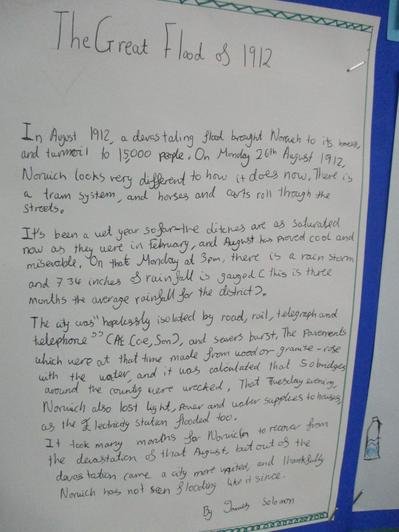 The Great Flood of 1912
In August 1912, a devastating flood brought Norwich to its knees,
and turmoil to 15,000 people. On Monday 26th August 1912,
Norwich looks very different to how it does now. There is
a tram system, and horses and carts roll through the
streets.
It's been a wet year so far - the ditches are as saturated
now as they were in february, and August has proved cool and
miserable. On that Monday at 3pm, there is a rain storm
and 7.34 inches of rainfall is gauged (this is three
months the average rainfall for the district).
The city was "hopelessly isolated by road, rail, telegraph and
telephone" (At Coe, Son), and sewers burst. The pavements
which were at that time made from wood or granite - rose
with the water, and it was calculated that 50 bridges
around the county were wrecked. That Tuesday evening,
Norwich also lost light, power and water supplies to houses,
as the Electricity station flooded too.
It took many months for Norwich to recover from
the devastation of that August, but out of the
devastation came a city more united, and thankfully
Norwich has not seen flooding like it since.
By James Solomon